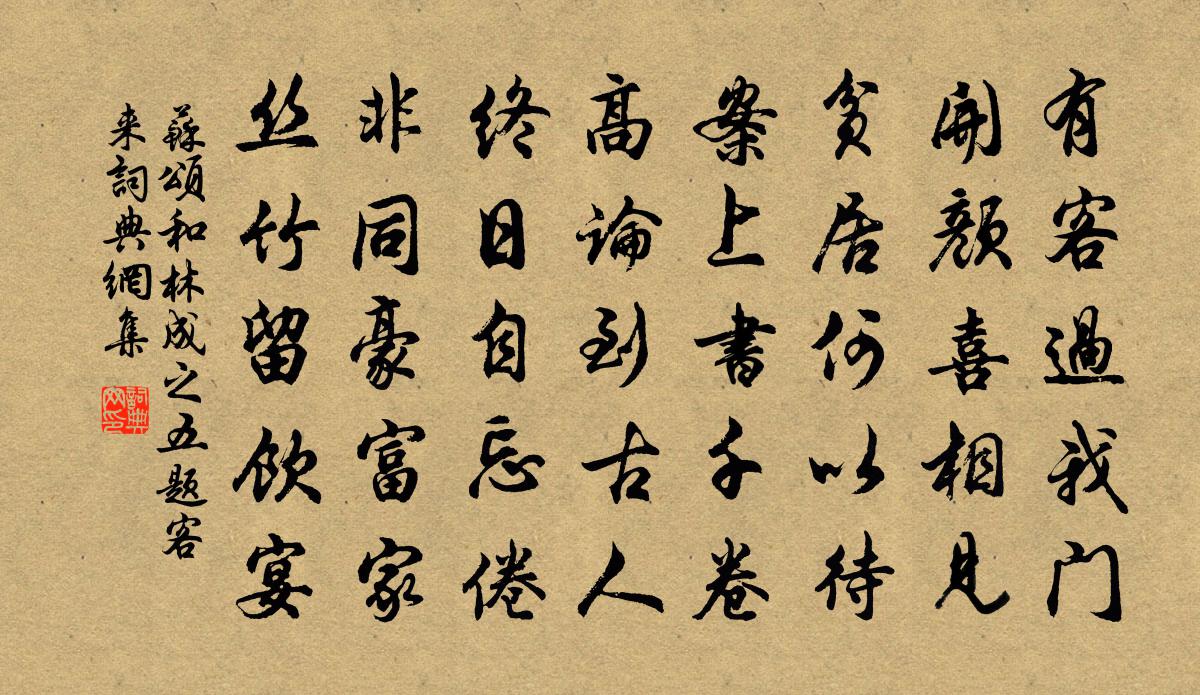 有客過我門
開顔喜相見
貧居何以待
案上書千卷
高論到古人
終日自忘倦
非同豪富家
丝竹留飲宴
蘇頌和林成之五题客
来詞典網集
詞典
網印